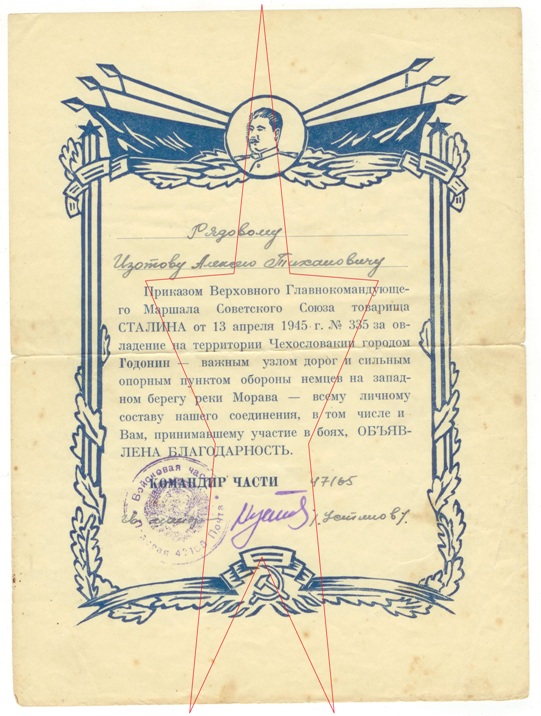 Рядовому
Изотову Алексею Тихановичу
Приказом Верховного Главнокомандующе-
го Маршала Советского Союза товарища
СТАЛИНА от 13 апреля 1945 г. № 335 за ов-
ладение на территории Чехословакии городом
Годонин — важным узлом дорог и сильным
опорным пунктом обороны немцев на запад-
ном берегу реки Морава — всему личному
составу нашего соединения, в том числе и
Вам, принимавшему участие в боях, ОБЪЯВ-
ЛЕНА БЛАГОДАРНОСТЬ.
КОМАНДИР ЧАСТИ 47165
Войсковая часть
Полевая 47165 Почта